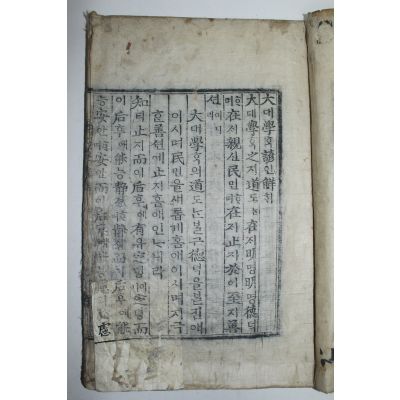 大대學학諺언解ᄒᆡ
大대學학之지道도ᄂᆞᆫ在ᄌᆡ明명明명德덕
ᄒᆞ며在ᄌᆡ親신民민ᄒᆞ며在ᄌᆡ止지於어至지善
션이니라
大대學학의道도ᄂᆞᆫᄇᆞᆯ근德덕을ᄇᆞᆯ킴애
이시며民민을새롭게홈애이시며지극
ᄒᆞᆫ善션에止지홈애인ᄂᆞ니라
知디止지而이后후에有유定뎡이니定뎡而
이后후에能능靜졍ᄒᆞ며靜졍而이后후에能
능安안ᄒᆞ며安안而이后후에能능慮